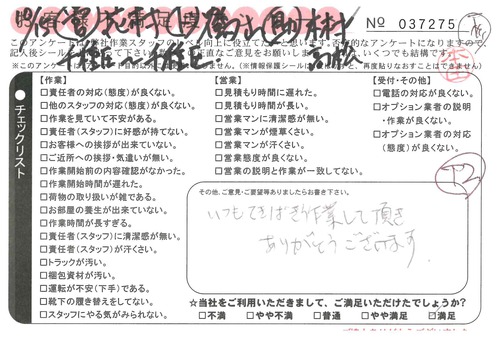 No 037275
このアンケートは弊社作業スタッフのレベル向上に役立てたいと思います。否定的なアンケートになりますので、
記入後シールを貼って正直なご意見をお願いいたします。いくつでも結構です。
※このアンケート（※情報保護シールにつきまして、再度貼りなおすことはできません）
チェックリスト
【作業】
□責任者の対応（態度）が良くない。
□他のスタッフの対応（態度）が良くない。
□作業を見ていて不安がある。
□責任者（スタッフ）に好感が持てない。
□お客様への挨拶が出来ていない。
□ご近所への挨拶・気遣いが無い。
□作業開始前の内容確認がなかった。
□作業開始時間が遅れた。
□荷物の取り扱いが雑である。
□お部屋の養生が出来ていない。
□作業時間が長すぎる。
□責任者（スタッフ）に清潔感が無い。
□責任者（スタッフ）が汗くさい。
□トラックが汚い。
□梱包資材が汚い。
□運転が不安（下手）である。
□靴下の履き替えをしてない。
□スタッフにやる気がみられない。
【営業】
□見積もり時間に遅れた。
□見積もり時間が長い。
□営業マンに清潔感が無い。
□営業マンが煙草くさい。
□営業マンが汗くさい。
□営業態度が良くない。
□営業の説明と作業が一致してない。
【受付・その他】
□電話の対応が良くない。
□オプション業者の説明
・作業が良くない。
□オプション業者の対応
（態度）が良くない。
その他、ご意見・ご要望等ありましたらお書き下さい。
いつもてきぱき作業して頂き
ありがとうございます。
☆当社をご利用いただきまして、ご満足いただけたでしょうか？
□不満 □やや不満 □普通 □やや満足 ☑満足